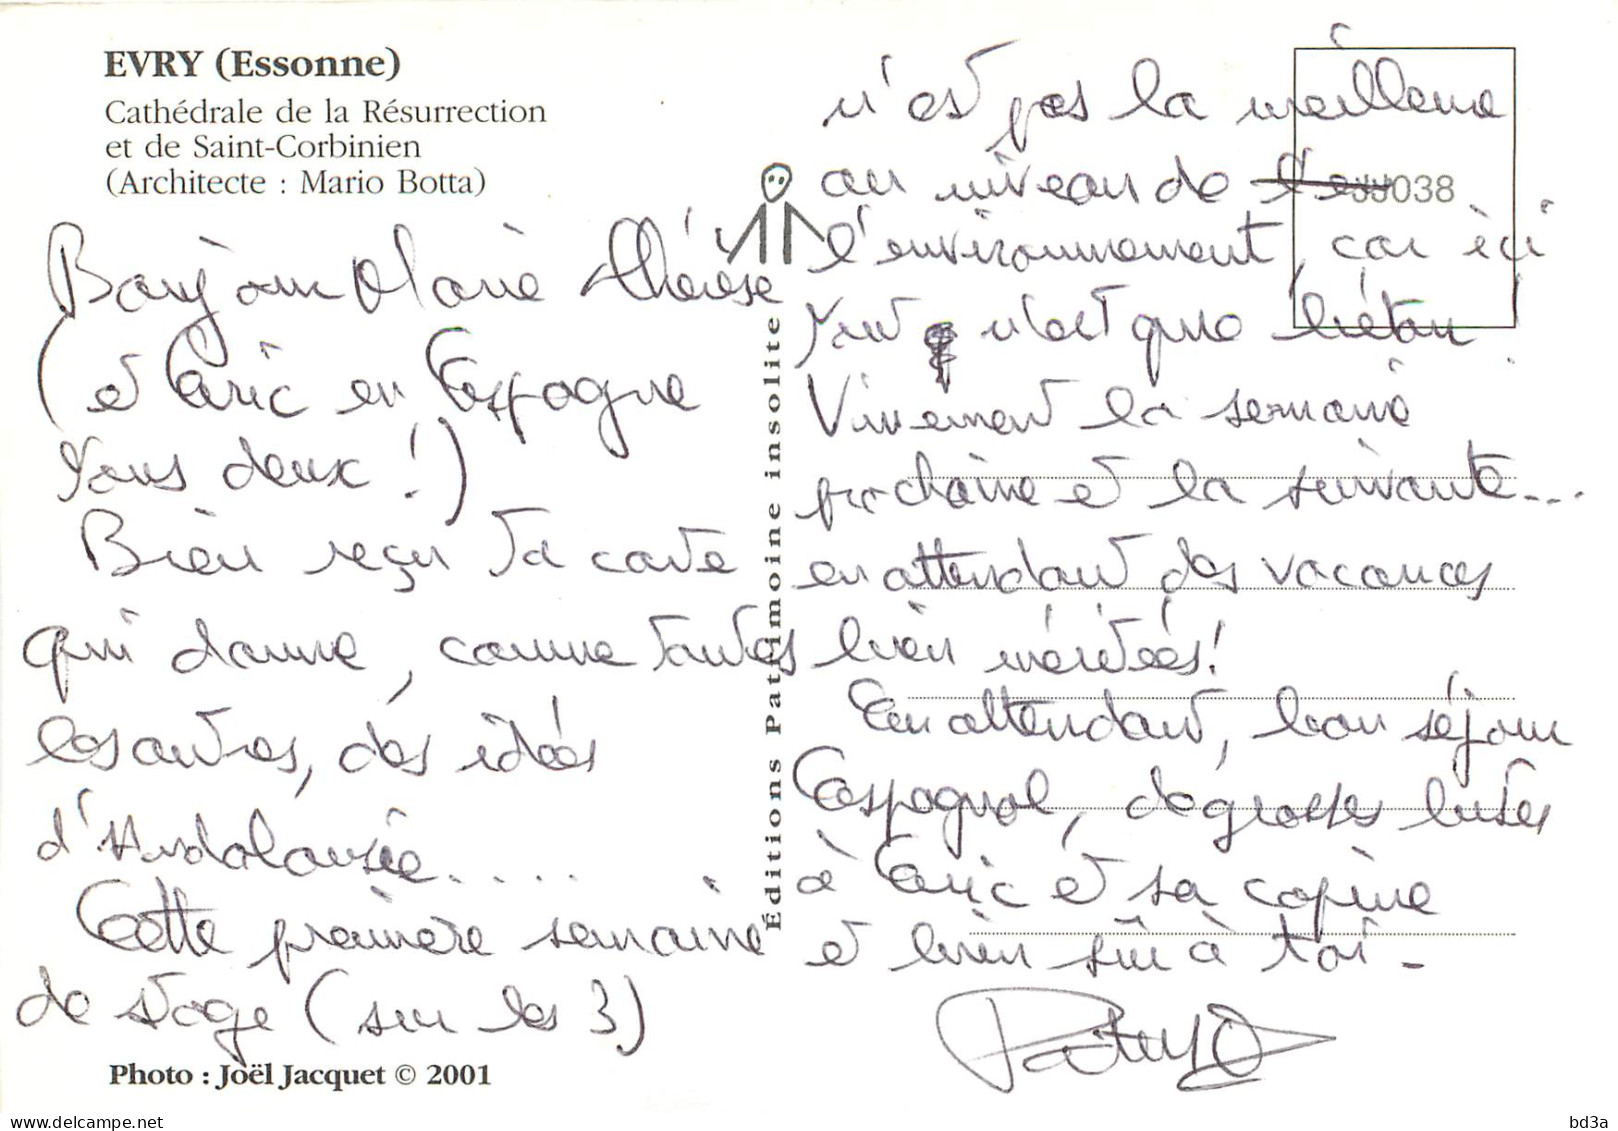 EVRY (Essonne)
Cathédrale de la Résurrection
et de Saint-Corbinien
(Architecte : Mario Botta)
Bonjour Marie Thérèse
(et Eric en Espagne
tous deux !)
Bien reçu ta carte
qui donne, comme toutes
les autres, des idées
d'Andalousie....
Cette première semaine
de stage (sur les 3)
Photo : Joël Jacquet © 2001
Éditions Patrimoine insolite
n'est pas la meilleure
au niveau de
l'environnement, car ici
tout n'est que béton
Vivement la semaine
prochaine et la suivante...
en attendant des vacances
bien méritées !
En attendant, bon séjour
Espagnol, de grosses bises
à Eric et sa copine
et bien sûr à toi -
JJ038